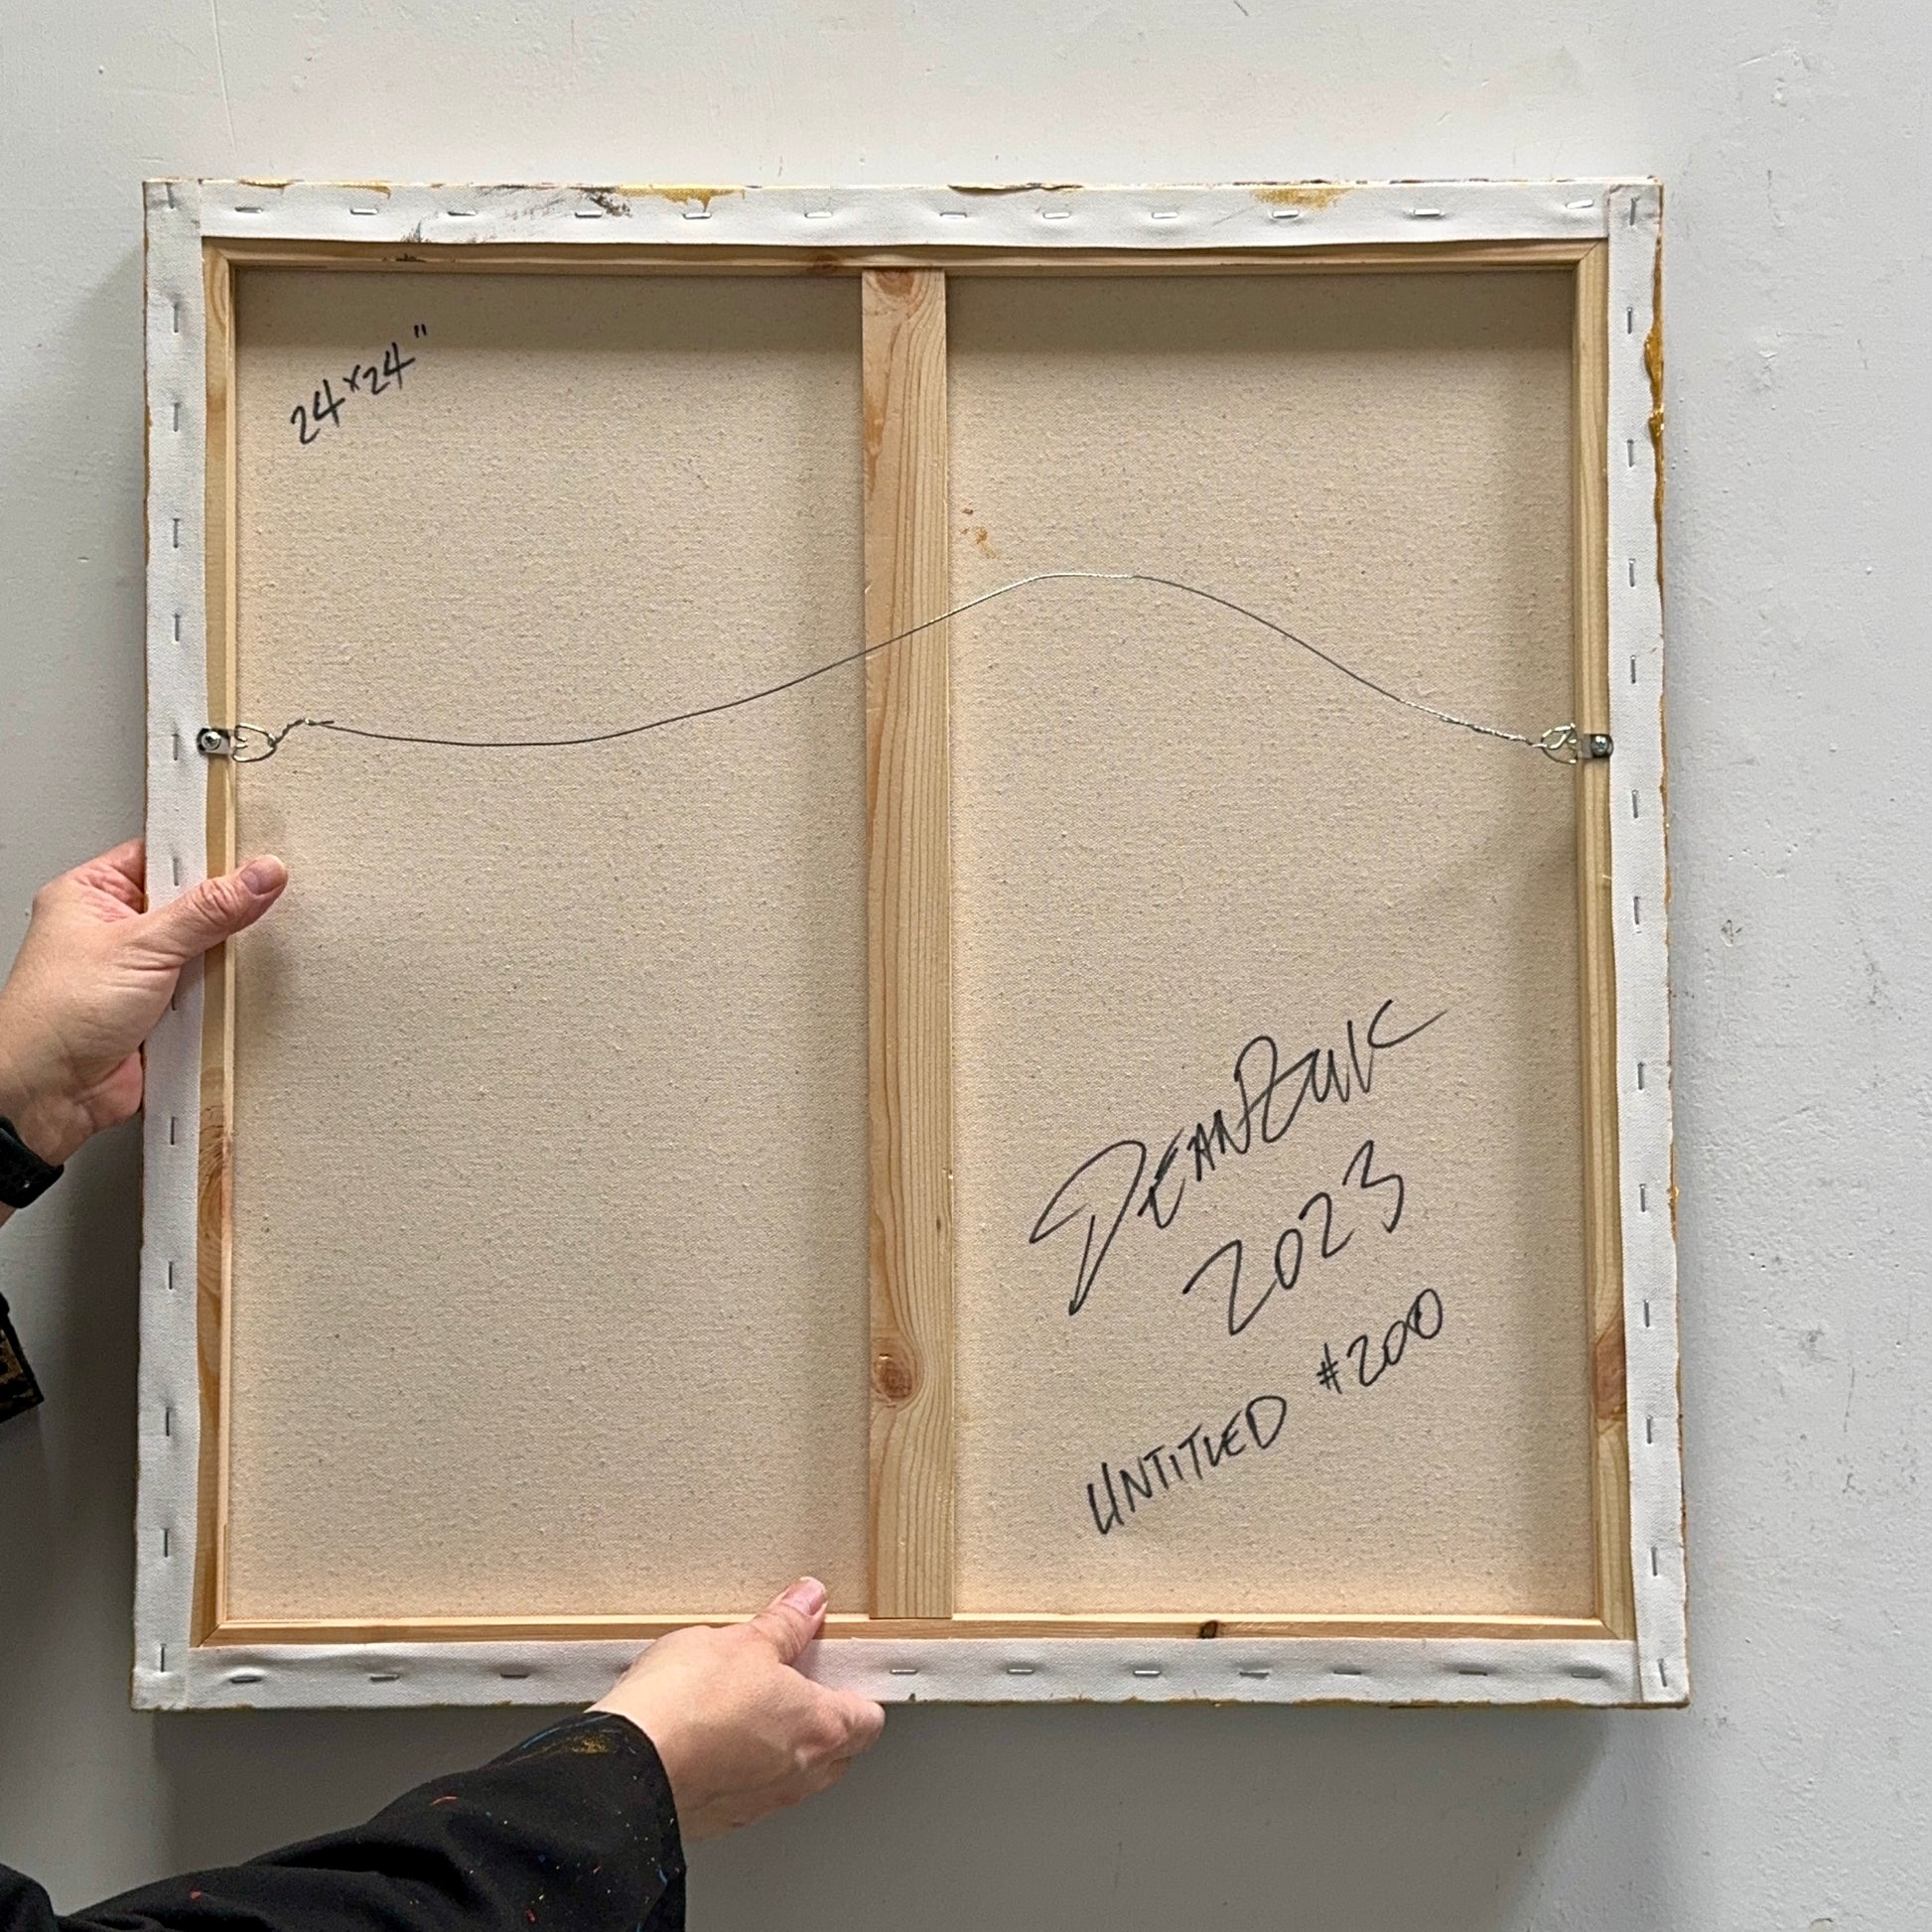 24x24"
DEANBUK
2023
UNTITLED #200